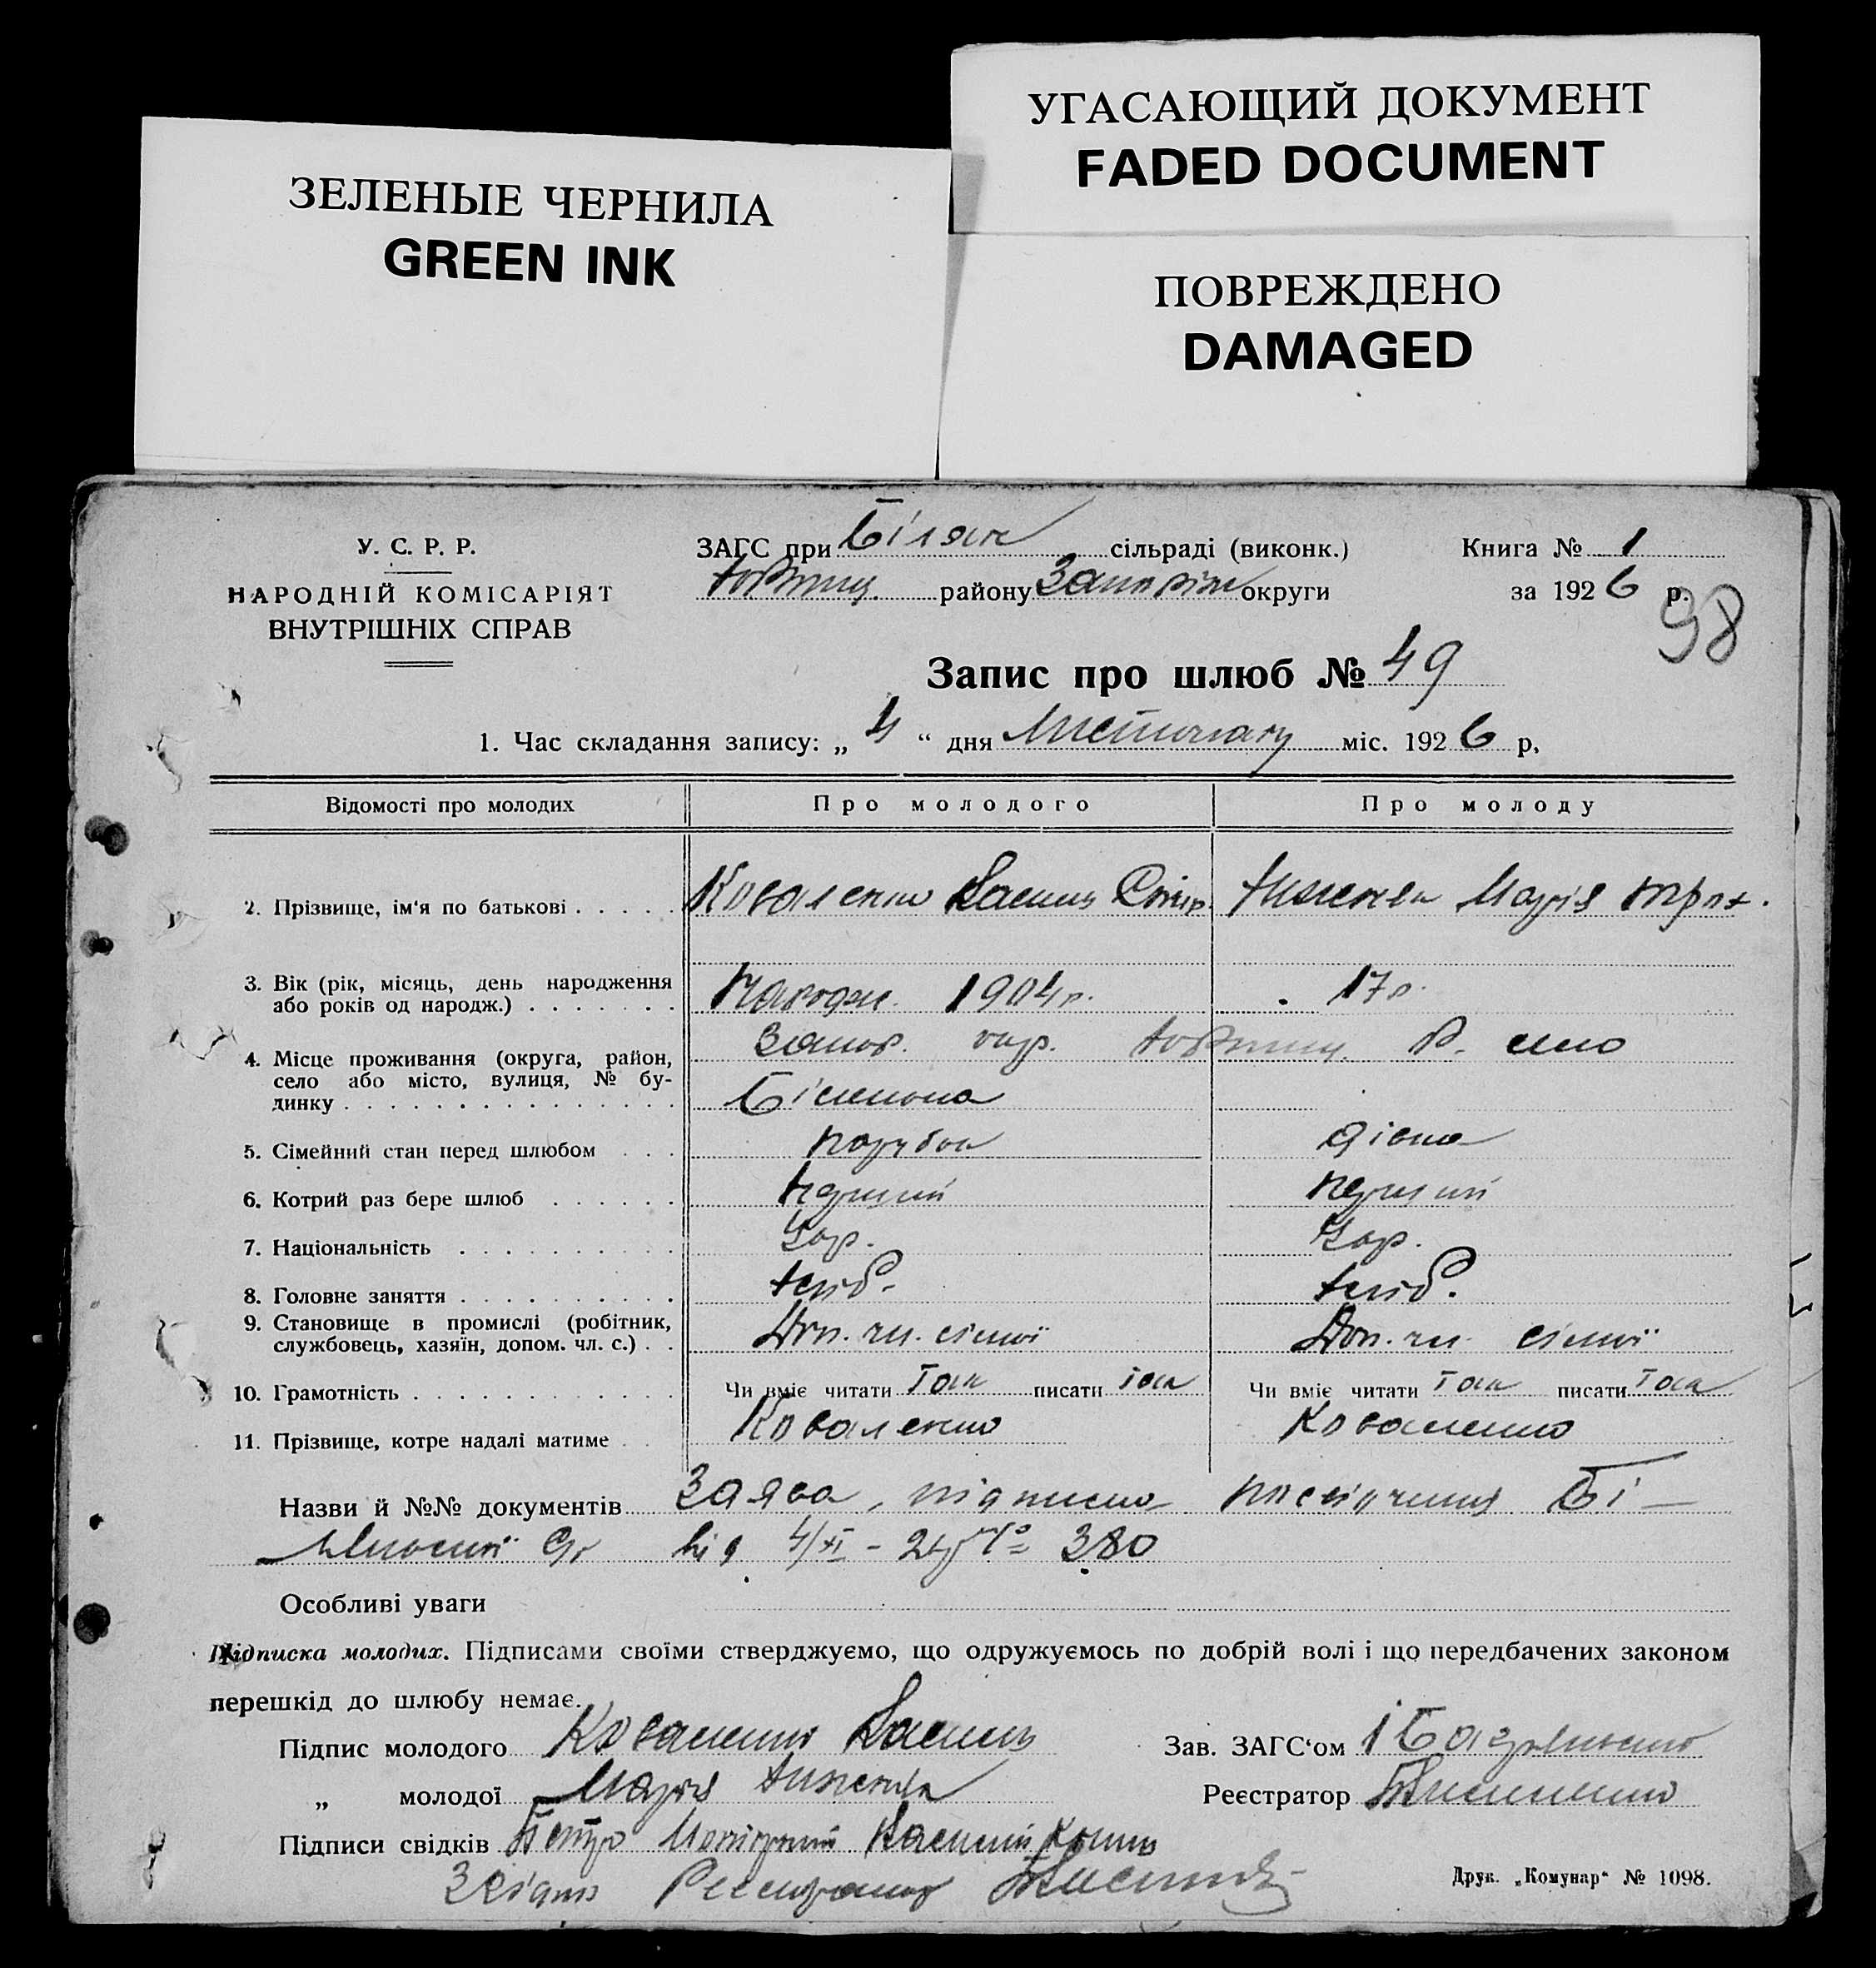 УГАСАЮЩИЙ ДОКУМЕНТ
FADED DOCUMENT
ЗЕЛЕНЫЕ ЧЕРНИЛА
GREEN INK
ПОВРЕЖДЕНО
DAMAGED
У. С. Р. Р.
НАРОДНІЙ КОМІСАРІЯТ
ВНУТРІШНІХ СПРАВ
ЗАГС при сільраді (виконк.)
району Запоріж округи
Книга № 1
за 1926 р.
98
Запис про шлюб № 49
1. Час складання запису: „ 4 “ дня Листопаду міс. 1926 р.
Відомості про молодих Про молодого Про молоду
2. Прізвище, ім'я по батькові . . . . . Коваленко Василь Марія
3. Вік (рік, місяць, день народження
або років од народж.) . . . . . . . Народж. 1904 р. 17 р.
4. Місце проживання (округа, район,
село або місто, вулиця, № бу-
динку . . . . . . . . . . . . . . . Запор. окр. Р. село
5. Сімейний стан перед шлюбом . . . парубок дівка
6. Котрий раз бере шлюб . . . . . . перший перший
7. Національність . . . . . . . . . . Укр. Укр.
8. Головне заняття . . . . . . . . . . хліб. хліб.
9. Становище в промислі (робітник,
службовець, хазяїн, допом. чл. с.) . . Доп. чл. сімї Доп. чл. сімї
10. Грамотність . . . . . . . . . . . . Чи вміє читати Так писати так Чи вміє читати Так писати Так
11. Прізвище, котре надалі матиме . . . Коваленко Коваленко
Назви й №№ документів Заява, підписка посвідчення Бі-
від 4/XI - 26 р № 380
Особливі уваги
Підписка молодих. Підписами своїми стверджуємо, що одружуємось по добрій волі і що передбачених законом
перешкід до шлюбу немає.
Підпис молодого Коваленко Василь
Зав. ЗАГС'ом
„ молодої Марія
Реєстратор
Підписи свідків Петро Василь
З Реєстратор
Друк. „Комунар“ № 1098.